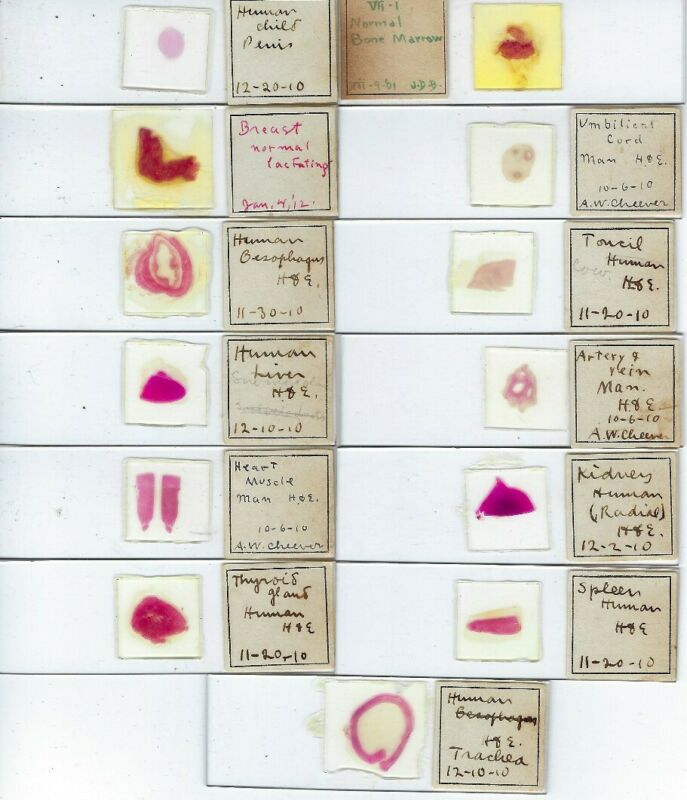 Human
child
Penis
12-20-10
VII-1
Normal
Bone Marrow
VII-9-01 J.D.B.
Breast
normal
lactating
Jan. 4, '12.
Umbilical
Cord
Man H&E.
10-6-10
A.W. Cheever
Human
Oesophagus
H&E.
11-30-10
Toncil
Human
Cow.
H&E.
11-20-10
Human
Liver
H&E.
12-10-10
Artery &
vein
Man.
H&E
10-6-10
A.W. Cheever
Heart
Muscle
Man H&E.
10-6-10
A.W. Cheever
Kidney
Human
(Radial)
H&E.
12-2-10
Thyroid
gland
Human
H&E
11-20-10
Spleen
Human
H&E
11-20-10
Human
Oesophagus
H&E.
Trachea
12-10-10